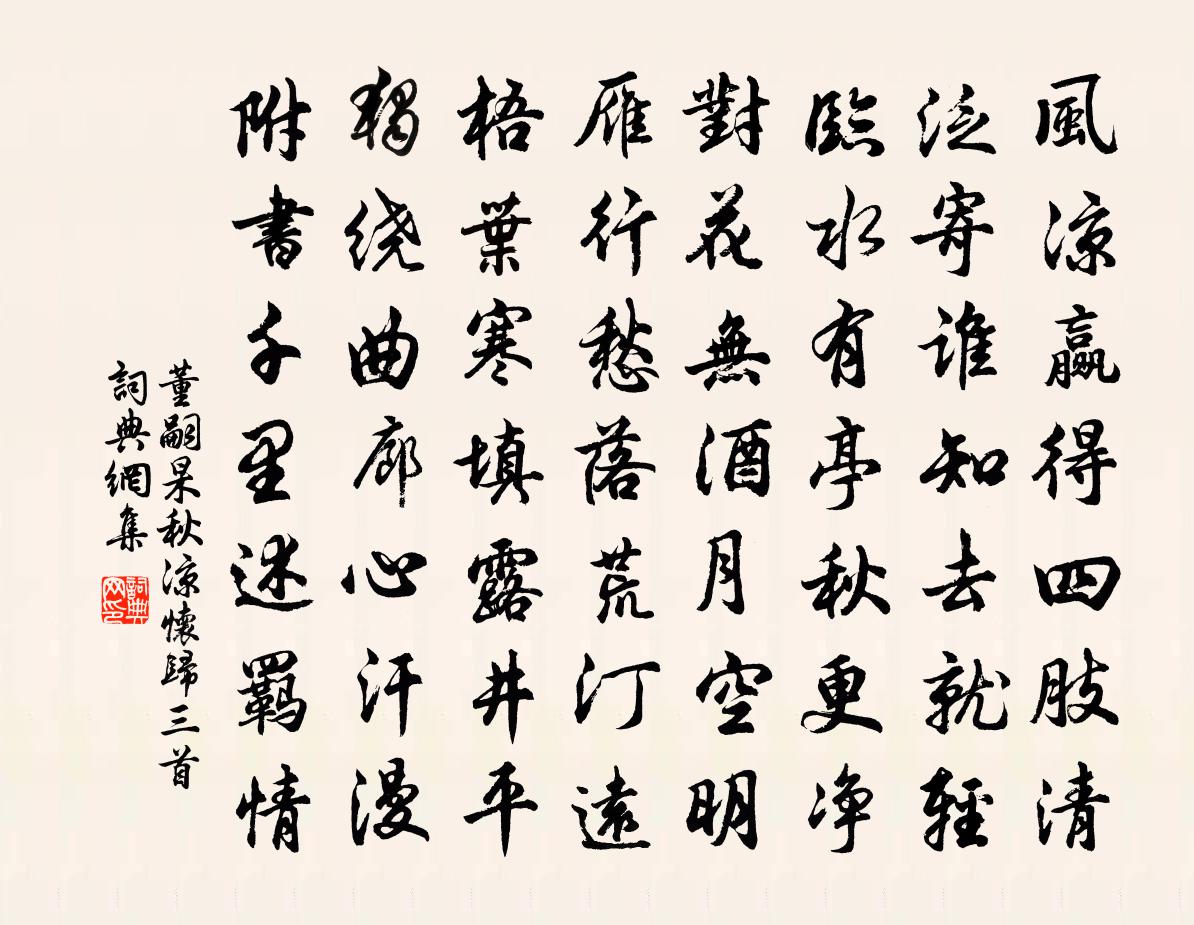 風凉贏得四肢清
泛寄谁知去就輕
臨水有亭秋更净
對花無酒月空明
雁行愁落荒汀遠
梧葉寒填露井平
独绕曲廊心汗漫
附書千里迷羁情
董嗣杲秋涼懷歸三首
詞典網集
詞典网印